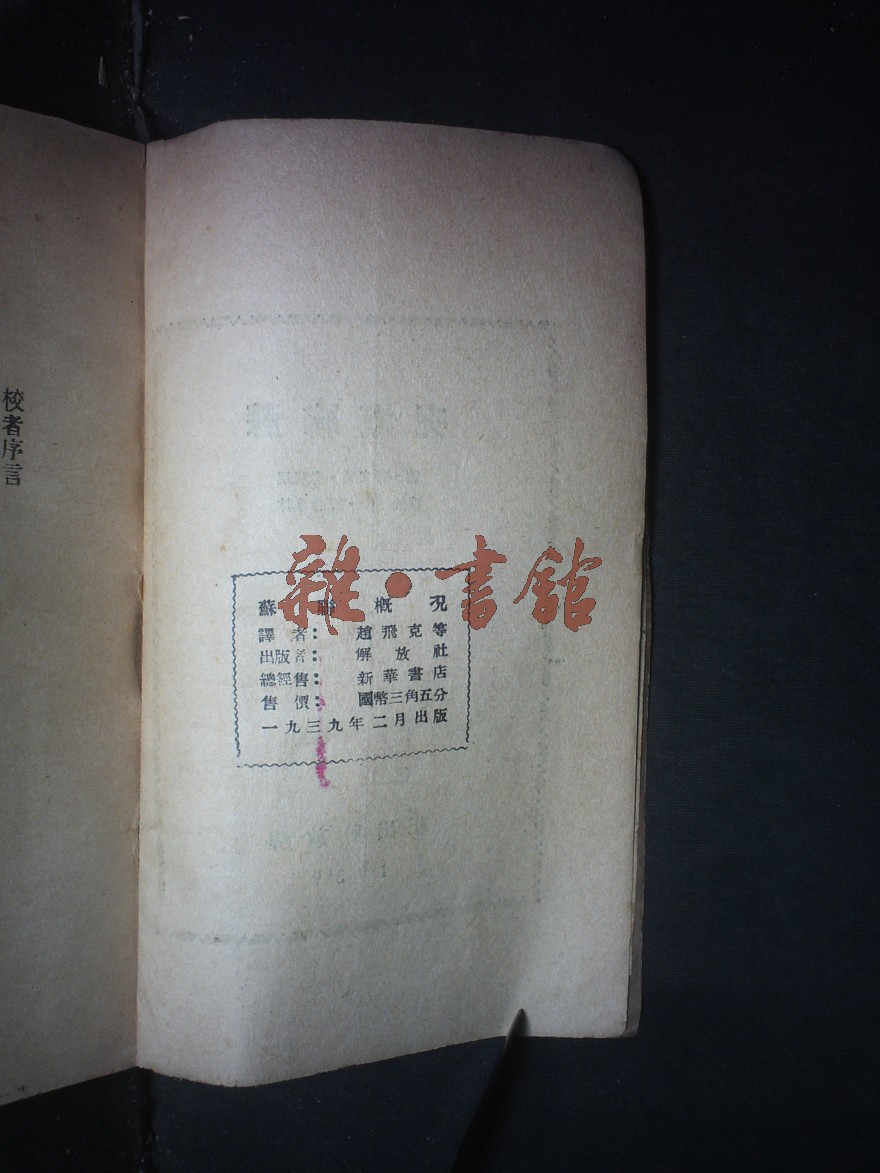 校者序言
雜·書館
蘇聯概況
譯者：趙飛克等
出版者：解放社
總經售：新華書店
售價：國幣三角五分
一九三九年二月出版